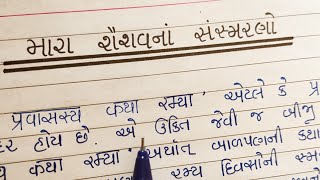 મારા શૈશવનાં સંસ્મરણો
પ્રવાસસ્ય કથા રમ્યા' એટલે કે પ્ર
દર હોય છે. એ ઉક્તિ જેવી જ બીજી
કથા રમ્યા' અર્થાત્ બાળપણની કથા
રમ્ય દિવસોની સ્મર